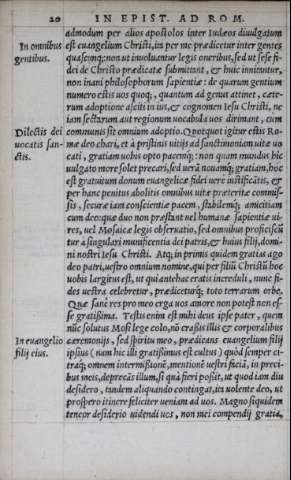 20 IN EPIST. AD ROM.
admodum per alios apostolos inter Iudæos diuulgatum
In omnibus est euangelium Christi, ita per me prædicetur inter gentes
gentibus. quascunq;: non ut inuoluantur legis oneribus, sed ut sese fi-
dei de Christo prædicatæ submittant, & huic innitantur,
non inani philosophorum sapientiæ: de quarum gentium
numero estis uos quoq;, quantum ad genus attinet, cæte-
rum adoptione ascitti in ius, & cognomen Iesu Christi, ne
iam sectarum aut regionum uocabula uos dirimant, cum
Dilectis dei communis sit omnium adoptio. Quotquot igitur estis Ro-
uocatis san- mæ deo chari, et à pristinis uitijs ad sanctimoniam uitæ uo
ctis. cati, gratiam uobis opto pacemq;: non quam mundus hic
uulgato more solet precari, sed uerã nouamq; gratiam, hoc
est gratuitum donum euangelicæ fidei uere iustificatis, &
per hanc penitus abolitis omnibus uitæ præteritæ commis-
sis, securæ iam conscientiæ pacem, stabilemq; amicitiam
cum deo: quæ duo non præstant uel humanæ sapientiæ ui-
res, uel Mosaicæ legis obseruatio, sed omnibus proficiscũ
tur à singulari munificentia dei patris, & huius filij, domi-
ni nostri Iesu Christi. Atq; in primis quidem gratias ago
deo patri, uestro omnium nomine, qui per filiũ Christũ hoc
uobis largitus est, ut qui antehac eratis increduli, nunc fi-
des uestra celebretur, prædiceturq; toto terrarum orbe.
Quæ sanè res pro meo erga uos amore non potest nen es-
se gratissima. Testis enim est mihi deus ipse pater, quem
nũc solutus Mosi lege colo, nõ crassis illis & corporalibus
In euangelio cæremonijs, sed spiritu meo, prædicans euangelium filij
filij eius. ipsius (nam hic illi gratissimus est cultus) quòd semper ci-
traq; omnem intermissionẽ, mentionẽ uestri faciã, in preci-
bus meis, deprecãs illum, si quà fieri possit, ut quod iam diu
desidero, tandem aliquando contingat, ita uolente deo, ut
prospero itinere feliciter ueniam ad uos. Magno siquidem
teneor desiderio uidendi uos, non mei compendij gratia,